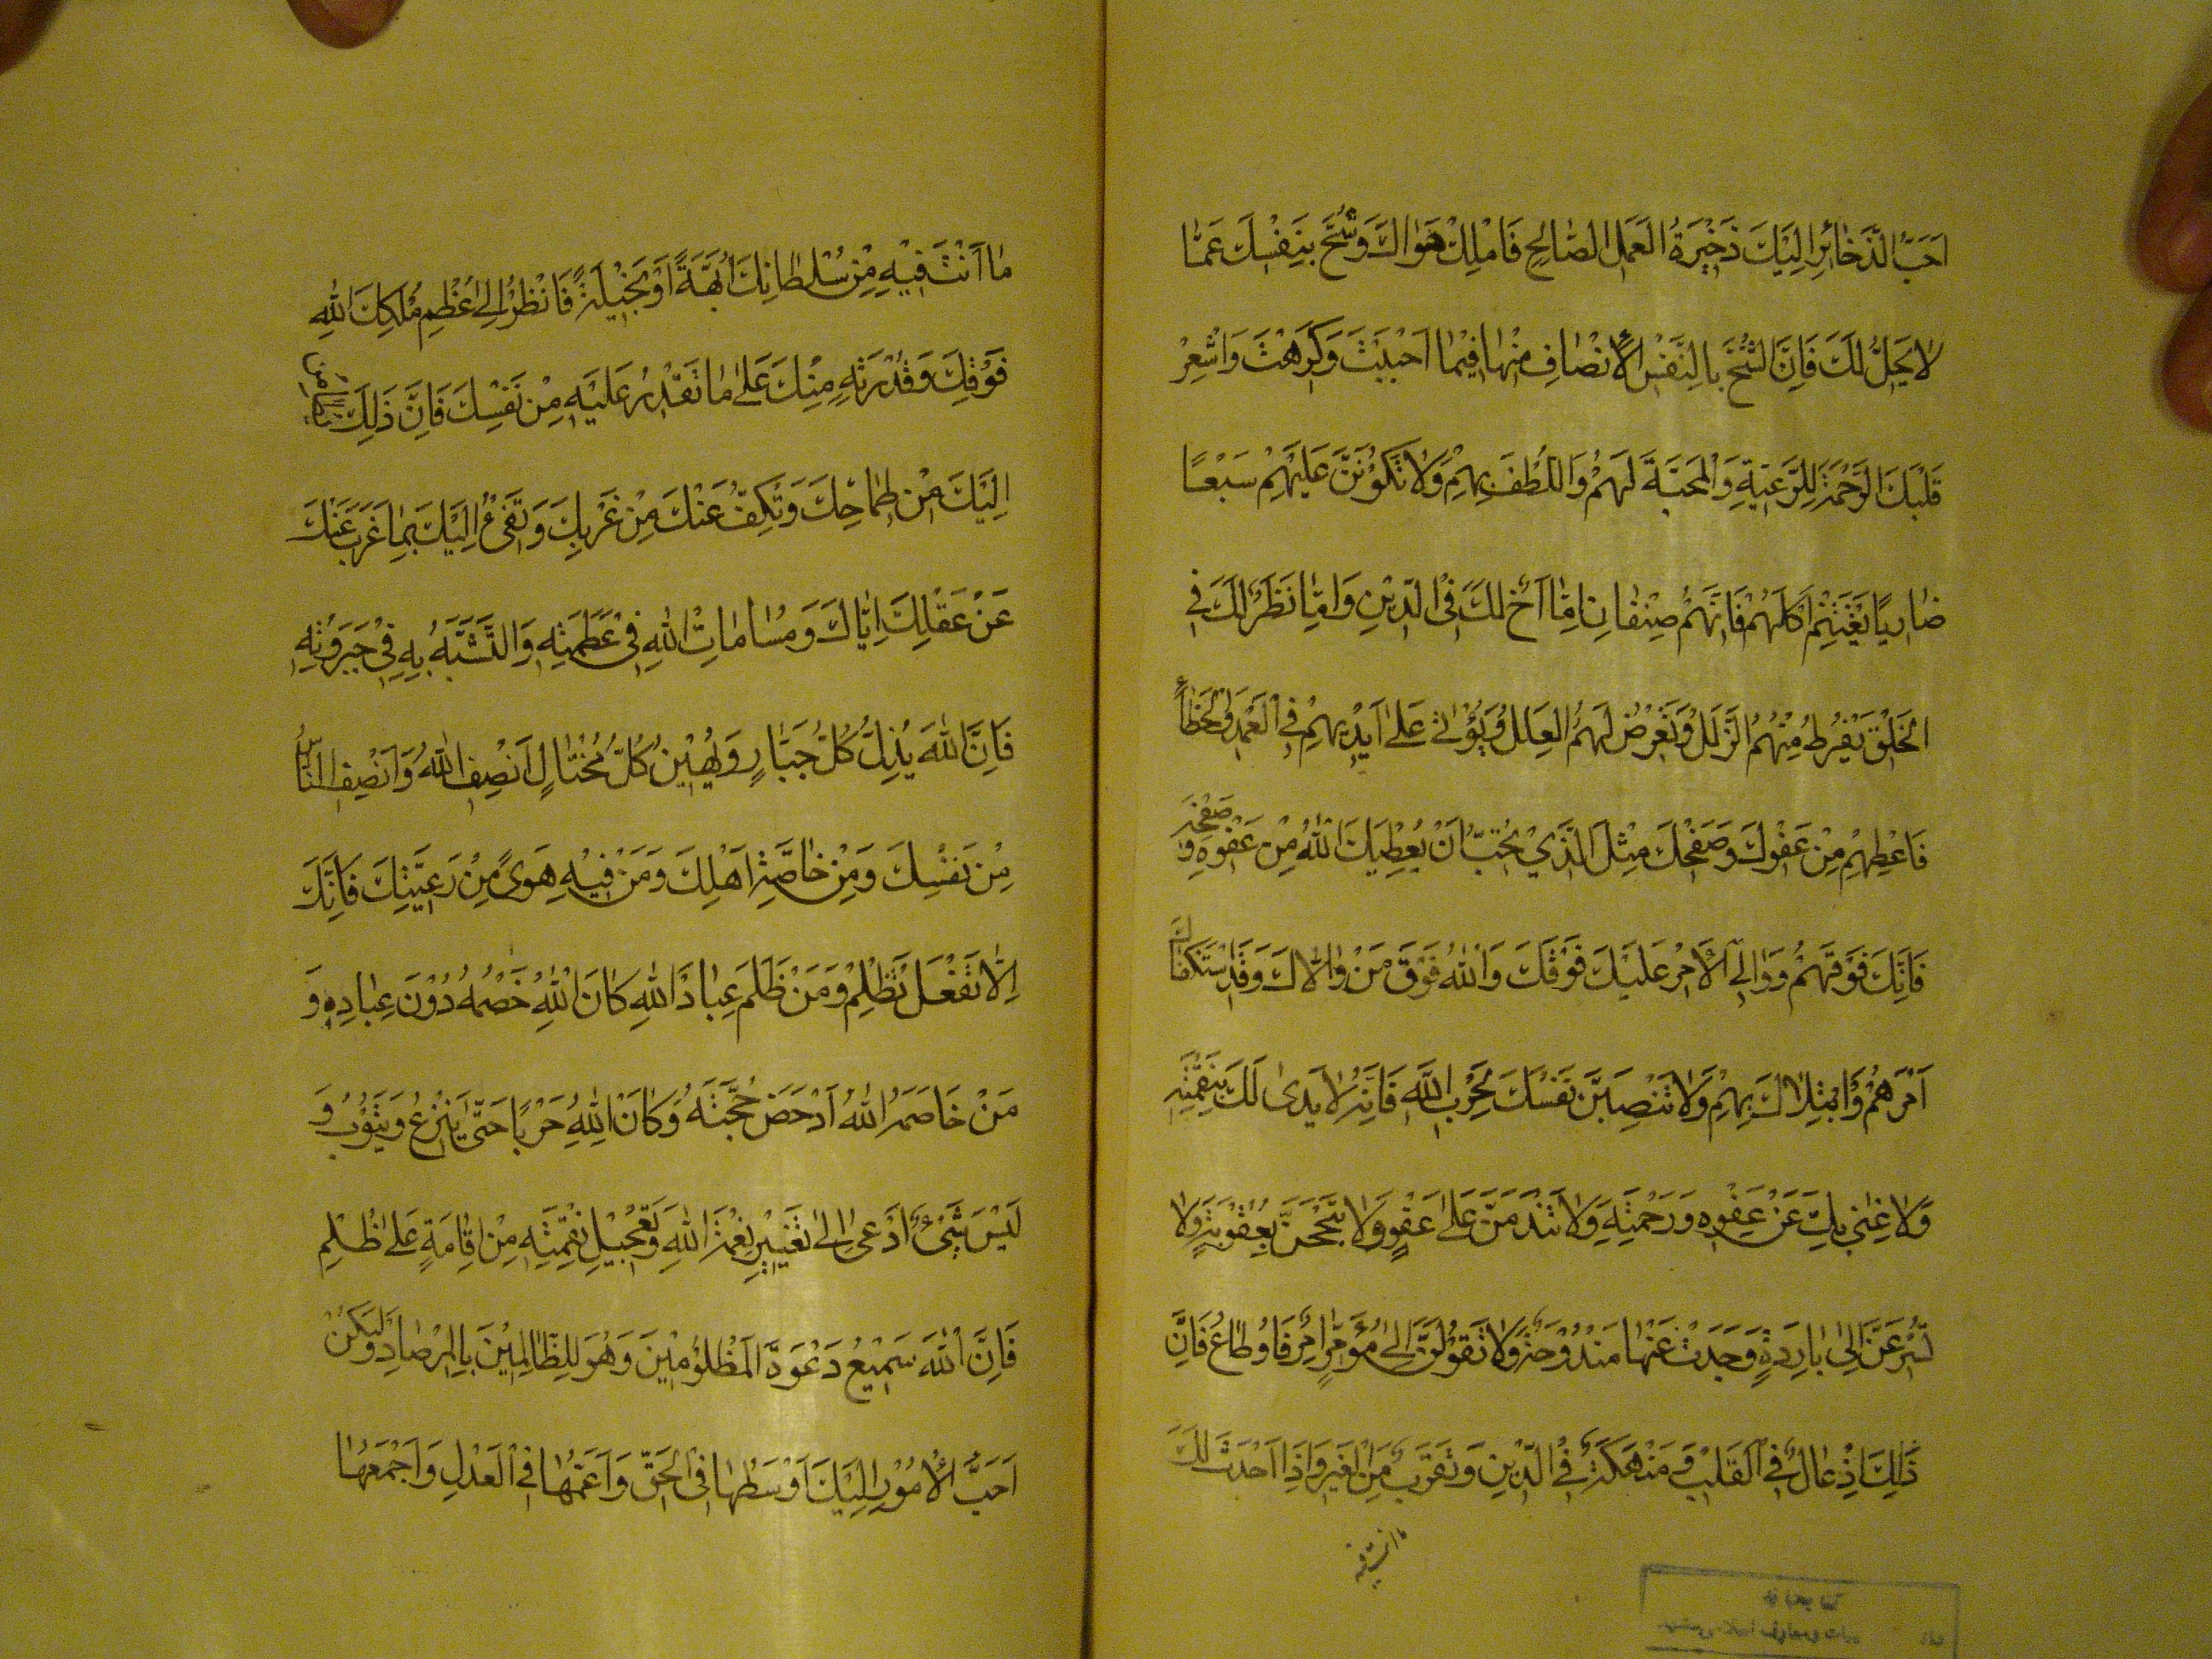 اَحَبَّ الذَّخٰائِرِ اِلَيْكَ ذَخِيْرَةُ الْعَمَلِ الصّٰالِحِ فَامْلِكْ هَوٰاكَ وَشُحَّ بِنَفْسِكَ عَمّٰا
لاٰ يَحِلُّ لَكَ فَاِنَّ الشُّحَّ بِالنَّفْسِ الْاِنْصٰافُ مِنْهٰا فِيْمٰا اَحْبَبْتَ وَكَرِهْتَ وَاَشْعِرْ
قَلْبَكَ الرَّحْمَةَ لِلرَّعِيَّةِ وَالْمَحَبَّةَ لَهُمْ وَاللُّطْفَ بِهِمْ وَلاٰ تَكُوْنَنَّ عَلَيْهِمْ سَبْعًا
ضٰارِيًا تَغْتَنِمُ اَكْلَهُمْ فَاِنَّهُمْ صِنْفٰانِ اِمّٰا اَخٌ لَكَ فِي الدِّيْنِ وَاِمّٰا نَظِيْرٌ لَكَ فِي
الْخَلْقِ يَفْرُطُ مِنْهُمُ الزَّلَلُ وَتَعْرِضُ لَهُمُ الْعِلَلُ وَيُؤْتىٰ عَلىٰ اَيْدِيْهِمْ فِي الْعَمْدِ وَالْخَطَأِ
فَاَعْطِهِمْ مِنْ عَفْوِكَ وَصَفْحِكَ مِثْلَ الَّذِيْ تُحِبُّ اَنْ يُعْطِيَكَ اللّٰهُ مِنْ عَفْوِهِ وَ صَفْحِهِ
فَاِنَّكَ فَوْقَهُمْ وَوٰالِي الْاَمْرِ عَلَيْكَ فَوْقَكَ وَاللّٰهُ فَوْقَ مَنْ وَلّاٰكَ وَقَدِ اسْتَكْفٰاكَ
اَمْرَهُمْ وَابْتَلاٰكَ بِهِمْ وَلاٰ تَنْصِبَنَّ نَفْسَكَ لِحَرْبِ اللّٰهِ فَاِنَّهُ لاٰ يَدىٰ لَكَ بِنِقْمَتِهِ
وَلاٰ غِنىٰ بِكَ عَنْ عَفْوِهِ وَرَحْمَتِهِ وَلاٰ تَنْدَمَنَّ عَلىٰ عَفْوٍ وَلاٰ تَبْجَحَنَّ بِعُقُوْبَةٍ وَلاٰ
تُسْرِعَنَّ اِلىٰ بٰادِرَةٍ وَجَدْتَ عَنْهٰا مَنْدُوْحَةً وَلاٰ تَقُوْلَنَّ اِنّىٰ مُؤَمَّرٌ اٰمُرُ فَاُطٰاعُ فَاِنَّ
ذٰلِكَ اِدْغٰالٌ فِي الْقَلْبِ وَ مَنْهَكَةٌ فِي الدِّيْنِ وَتَقَرُّبٌ مِنَ الْغِيَرِ وَاِذٰا اَحْدَثَ لَكَ
ما انت فيه
مٰا اَنْتَ فِيْهِ مِنْ سُلْطٰانِكَ اُبَّهَةً اَوْ مَخِيْلَةً فَانْظُرْ اِلىٰ عُظْمِ مُلْكِ اللّٰهِ
فَوْقَكَ وَقُدْرَتِهِ مِنْكَ عَلىٰ مٰا تَقْدِرُ عَلَيْهِ مِنْ نَفْسِكَ فَاِنَّ ذٰلِكَ
اِلَيْكَ مِنْ طِمٰاحِكَ وَتَكُفُّ عَنْكَ مِنْ غَرْبِكَ وَتَفِيْءُ اِلَيْكَ بِمٰا عَزَبَ عَنْكَ
عَنْ عَقْلِكَ اِيّٰاكَ وَمُسٰامٰاتِ اللّٰهِ فِيْ عَظَمَتِهِ وَالتَّشَبُّهَ بِهِ فِيْ جَبَرُوْتِهِ
فَاِنَّ اللّٰهَ يُذِلُّ كُلَّ جَبّٰارٍ وَيُهِيْنُ كُلَّ مُخْتٰالٍ اَنْصِفِ اللّٰهَ وَاَنْصِفِ النّٰاسَ
مِنْ نَفْسِكَ وَمِنْ خٰاصَّةِ اَهْلِكَ وَمَنْ فِيْهِ هَوىً مِنْ رَعِيَّتِكَ فَاِنَّكَ
اِلّاٰ تَفْعَلْ تَظْلِمْ وَمَنْ ظَلَمَ عِبٰادَ اللّٰهِ كٰانَ اللّٰهُ خَصْمَهُ دُوْنَ عِبٰادِهِ وَ
مَنْ خَاصَمَهُ اللّٰهُ اَدْحَضَ حُجَّتَهُ وَكٰانَ لِلّٰهِ حَرْبًا حَتّىٰ يَنْزِعَ وَيَتُوْبَ وَ
لَيْسَ شَيْءٌ اَدْعىٰ اِلىٰ تَغْيِيْرِ نِعْمَةِ اللّٰهِ وَتَعْجِيْلِ نِقْمَتِهِ مِنْ اِقٰامَةٍ عَلىٰ ظُلْمٍ
فَاِنَّ اللّٰهَ سَمِيْعُ دَعْوَةِ الْمَظْلُوْمِيْنَ وَهُوَ لِلظّٰالِمِيْنَ بِالْمِرْصٰادِ وَلْيَكُنْ
اَحَبَّ الْاُمُوْرِ اِلَيْكَ اَوْسَطُهٰا فِي الْحَقِّ وَاَعَمُّهٰا فِي الْعَدْلِ وَاَجْمَعُهٰا